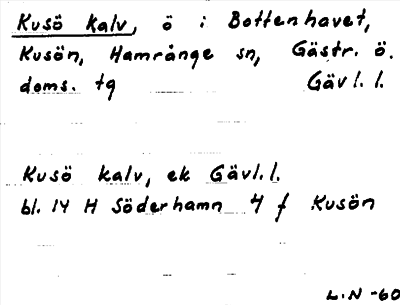 Kusö kalv, ö i Bottenhavet,
Kusön, Hamrånge sn, Gästr. ö.
doms. tg Gävl. l.
Kusö kalv, ek Gävl. l.
bl. 14 H Söderhamn 4 f Kusön
L.N -60